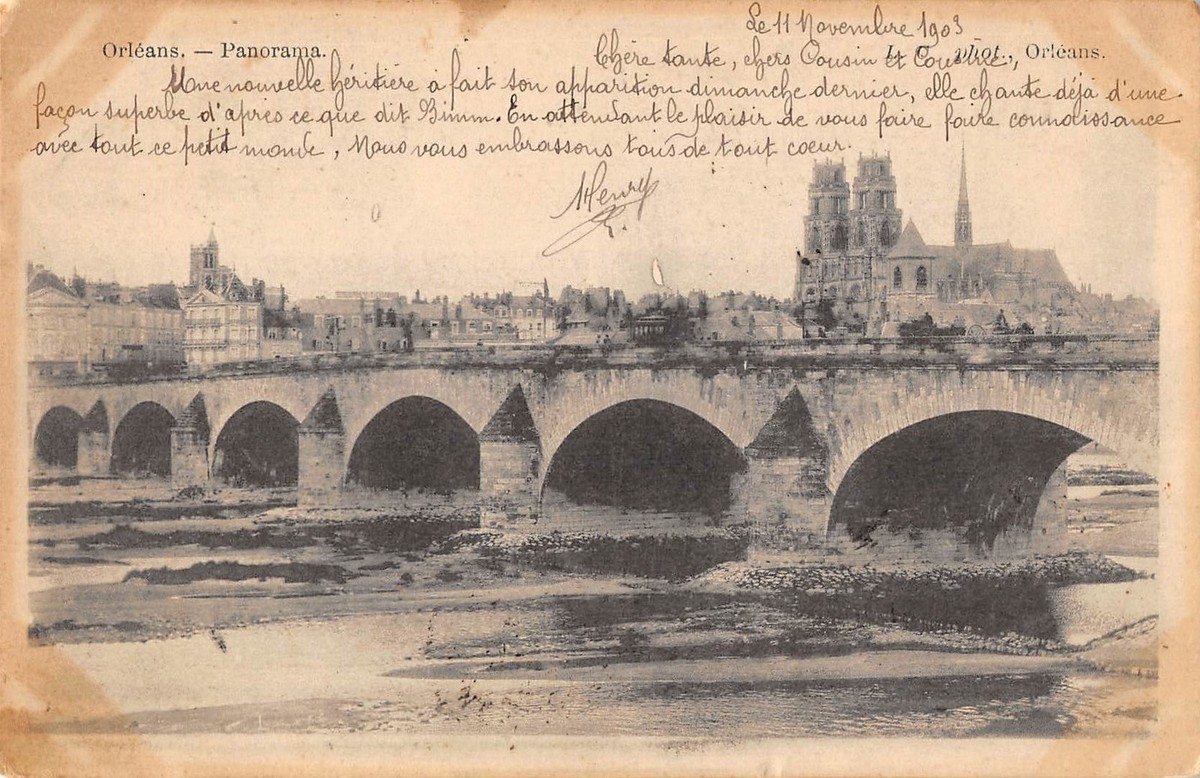 Le 11 Novembre 1903
Orléans. — Panorama.
L. C. phot., Orléans.
Chère tante, chers Cousin et Cousine,
Une nouvelle héritière a fait son apparition dimanche dernier, elle chante déjà d'une
façon superbe d'après ce que dit Bimm. En attendant le plaisir de vous faire faire connaissance
avec tout ce petit monde, Nous vous embrassons tous de tout coeur.
Henry